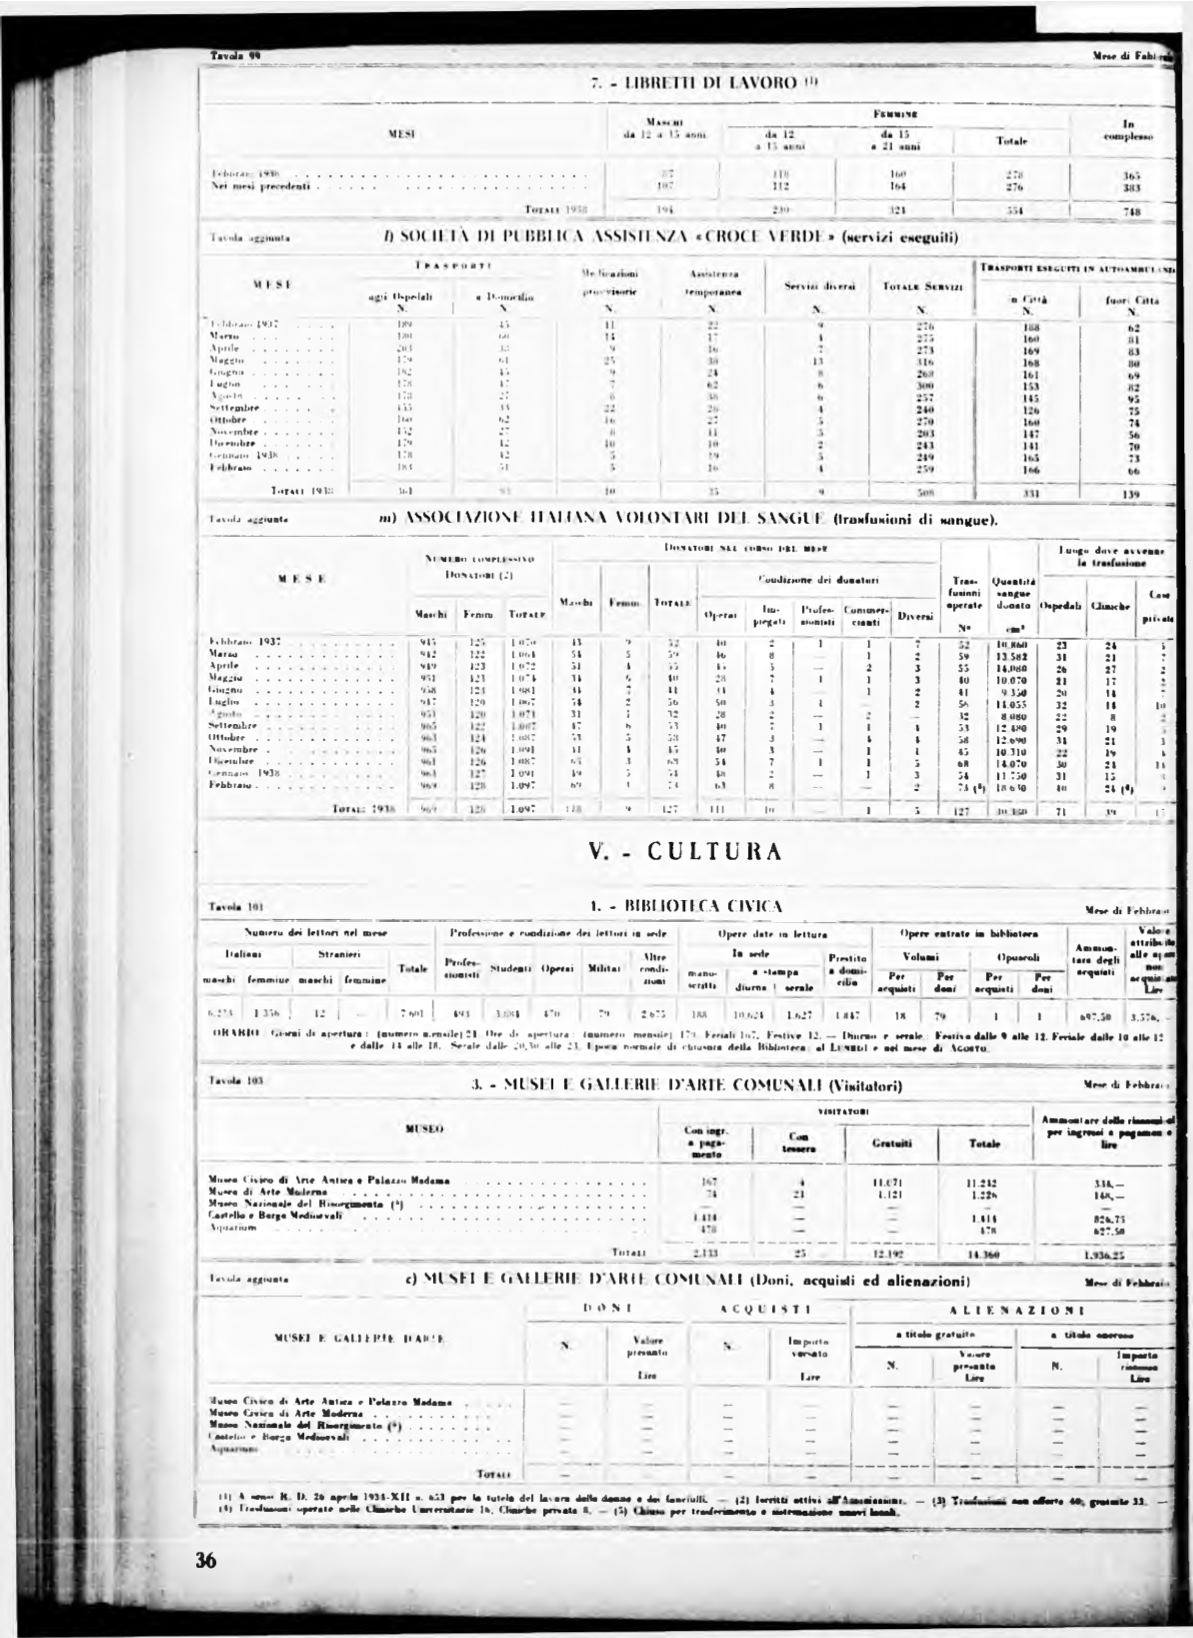 Tavola 99 Mese di
7. - LIBRETTI DI LAVORO (1)
MESI
MASCHI da 12 a 15 anni
FEMMINE
da 12 a 15 anni
da 15 a 21 anni
Totale
In complesso
Febbraio 1938 118 160 278 365
Nei mesi precedenti 107 112 164 276 383
TOTALI 1938 194 230 324 554 748
Tavola aggiunta
l) SOCIETÀ DI PUBBLICA ASSISTENZA «CROCE VERDE» (servizi eseguiti)
MESE
TRASPORTI
agli Ospedali N.
a Domicilio N.
Medicazioni provvisorie N.
Assistenza temporanea N.
Servizi diversi N.
TOTALE SERVIZI N.
in Città N.
fuori Città N.
Febbraio 1937 189 45 11 22 9 276 188 62
Marzo 180 60 14 17 4 275 160 81
Aprile 9 16 7 273 169 83
Maggio 179 61 25 38 13 316 168 80
Giugno 182 45 9 24 8 268 161 69
Luglio 178 47 7 62 6 300 153 82
Agosto 178 27 38 6 257 145 95
Settembre 22 4 240 126 75
Ottobre 160 62 16 27 5 270 160 74
Novembre 152 27 8 11 5 203 147 56
Dicembre 179 42 10 10 2 243 141 70
Gennaio 1938 178 42 5 19 5 249 165 73
Febbraio 183 51 5 16 4 259 166 66
TOTALI 1938 361 93 10 35 9 508 331 139
Tavola aggiunta
m) ASSOCIAZIONE ITALIANA VOLONTARI DEL SANGUE (trasfusioni di sangue).
MESE
NUMERO COMPLESSIVO DONATORI (2)
Maschi Femm. TOTALE
DONATORI NEL CORSO DEL MESE
Maschi Femm. TOTALE
Condizione dei donatori
Operai Impiegati Professionisti Commercianti Diversi
Trasfusioni operate N°
Quantità sangue donato cm³
Luogo dove avvenne la trasfusione
Ospedali Cliniche Case private
Febbraio 1937 945 125 1.070 43 9 52 40 2 1 1 7 52 10.860 23 24 5
Marzo 942 122 1.064 54 5 59 46 8 — 1 2 59 13.582 31 21 7
Aprile 949 123 1.072 51 4 55 45 5 — 2 3 55 14.080 26 27 2
Maggio 951 123 1.074 34 6 40 28 7 1 1 3 40 10.070 21 17 2
Giugno 958 123 1.081 34 7 41 34 4 — 1 2 41 9.350 20 14 7
Luglio 947 120 1.067 54 2 56 50 3 1 — 2 56 14.055 32 14 10
Agosto 951 120 1.071 31 1 32 28 2 — 2 — 32 8.080 22 8 2
Settembre 965 122 1.087 47 6 53 40 7 1 1 4 53 12.480 29 19 5
Ottobre 963 124 1.087 53 5 58 47 3 — 4 4 58 12.690 34 21 3
Novembre 965 126 1.091 41 4 45 40 3 — 1 1 45 10.310 22 19 4
Dicembre 961 126 1.087 65 3 68 54 7 1 1 5 68 14.070 30 24 14
Gennaio 1938 964 127 1.091 49 5 54 48 2 — 1 3 54 11.750 31 15
Febbraio 969 128 1.097 69 4 73 63 8 — — 2 73 (3) 18.630 40 24 (4)
TOTALI 1938 969 128 1.097 118 9 127 111 10 — 1 5 127 30.380 71 39 17
V. - CULTURA
Tavola 101
1. - BIBLIOTECA CIVICA
Mese di Febbraio
Numero dei lettori nel mese
Italiani Stranieri
maschi femmine maschi femmine Totale
Professione e condizione dei lettori in sede
Professionisti Studenti Operai Militari Altre condizioni
Opere date in lettura
In sede
manoscritti a stampa diurna serale
Prestito a domicilio
Opere entrate in biblioteca
Volumi Opuscoli
Per acquisti Per doni Per acquisti Per doni
Ammontare degli acquisti
Lire
6.233 1.356 12 — 7.601 493 3.884 470 79 2.675 188 10.624 1.627 1.847 18 79 1 1 697,50 3.576,—
ORARIO: Giorni di apertura: (numero mensile) 21. Ore di apertura: (numero mensile) 179. Feriali 167, Festive 12. — Diurno e serale: Festivo dalle 9 alle 12. Feriale dalle 10 alle 12
e dalle 14 alle 18. Serale dalle 20,30 alle 23. Epoca normale di chiusura della Biblioteca: al LUNEDÌ e nel mese di AGOSTO.
Tavola 103
3. - MUSEI E GALLERIE D'ARTE COMUNALI (Visitatori)
Mese di Febbraio
MUSEO
VISITATORI
Con ingr. a pagamento
Con tessera
Gratuiti
Totale
per ingressi a pagamento lire
Museo Civico di Arte Antica e Palazzo Madama 167 4 11.071 11.242 334,—
Museo di Arte Moderna 74 21 1.121 148,—
Museo Nazionale del Risorgimento (5) — — — — —
Castello e Borgo Medioevali 1.414 — — 1.414 826,75
Aquarium 478 — — 478 627,50
TOTALI 2.133 25 12.192 14.360 1.936,25
Tavola aggiunta
c) MUSEI E GALLERIE D'ARTE COMUNALI (Doni, acquisti ed alienazioni)
Mese di Febbraio
MUSEI E GALLERIE D'ARTE
DONI
N. Valore presunto Lire
ACQUISTI
N. Importo versato Lire
ALIENAZIONI
a titolo gratuito
N. Valore presunto Lire
a titolo oneroso
N. Importo Lire
Museo Civico di Arte Antica e Palazzo Madama — — — — — — — —
Museo Civico di Arte Moderna — — — — — — — —
Museo Nazionale del Risorgimento (5) — — — — — — — —
Castello e Borgo Medioevali — — — — — — — —
Aquarium — — — — — — — —
TOTALI — — — — — — — —
(1) A sensi R. D. 26 aprile 1934-XII n. 653 per la tutela del lavoro delle donne e dei fanciulli. — (2) Iscritti attivi all'Associazione. — (3) Trasfusioni non offerte 40; gratuite 33. —
(4) Trasfusioni operate nelle Cliniche Universitarie 16, Cliniche private 8. — (5) Chiuso per trasferimento e sistemazione nuovi locali.
36